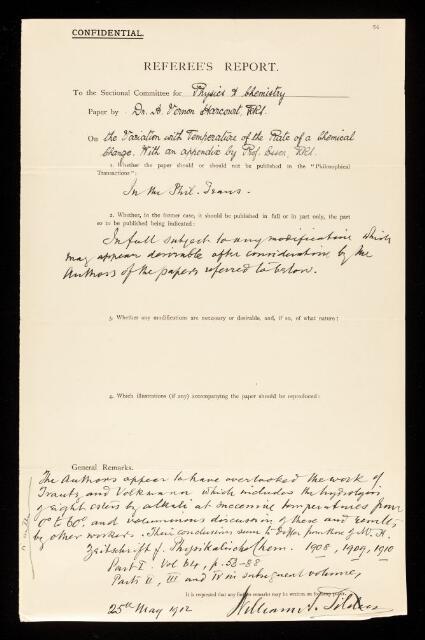 54
CONFIDENTIAL.
REFEREE'S REPORT.
To the Sectional Committee for Physics & Chemistry
Paper by Dr. A. Vernon Harcourt, FRS.
On the Variation with Temperature of the Rate of a Chemical
Change. With an appendix by Prof. Esson, FRS.
1. Whether the paper should or should not be published in the "Philosophical
Transactions":
In the Phil. Trans.
2. Whether, in the former case, it should be published in full or in part only, the part
so to be published being indicated:
In full subject to any modification which
may appear desirable after consideration by the
Authors of the papers referred to below.
3. Whether any modifications are necessary or desirable, and, if so, of what nature:
4. Which illustrations (if any) accompanying the paper should be reproduced:
General Remarks.
The Authors appear to have overlooked the work of
Trautz and Volkmann which includes the hydrolysis
of eight esters by alkali at successive temperatures from
0° to 60° and voluminous discussion of these and results
by other workers. Their conclusions seem to differ from those of V. H.
Zeitschrift f. Physikalische Chem. 1908, 1909, 1910
Part I Vol 64, p. 53-88
Parts II, III and IV in subsequent volumes,
It is requested that any further remarks may be written on
25th May 1912 William A. Tilden